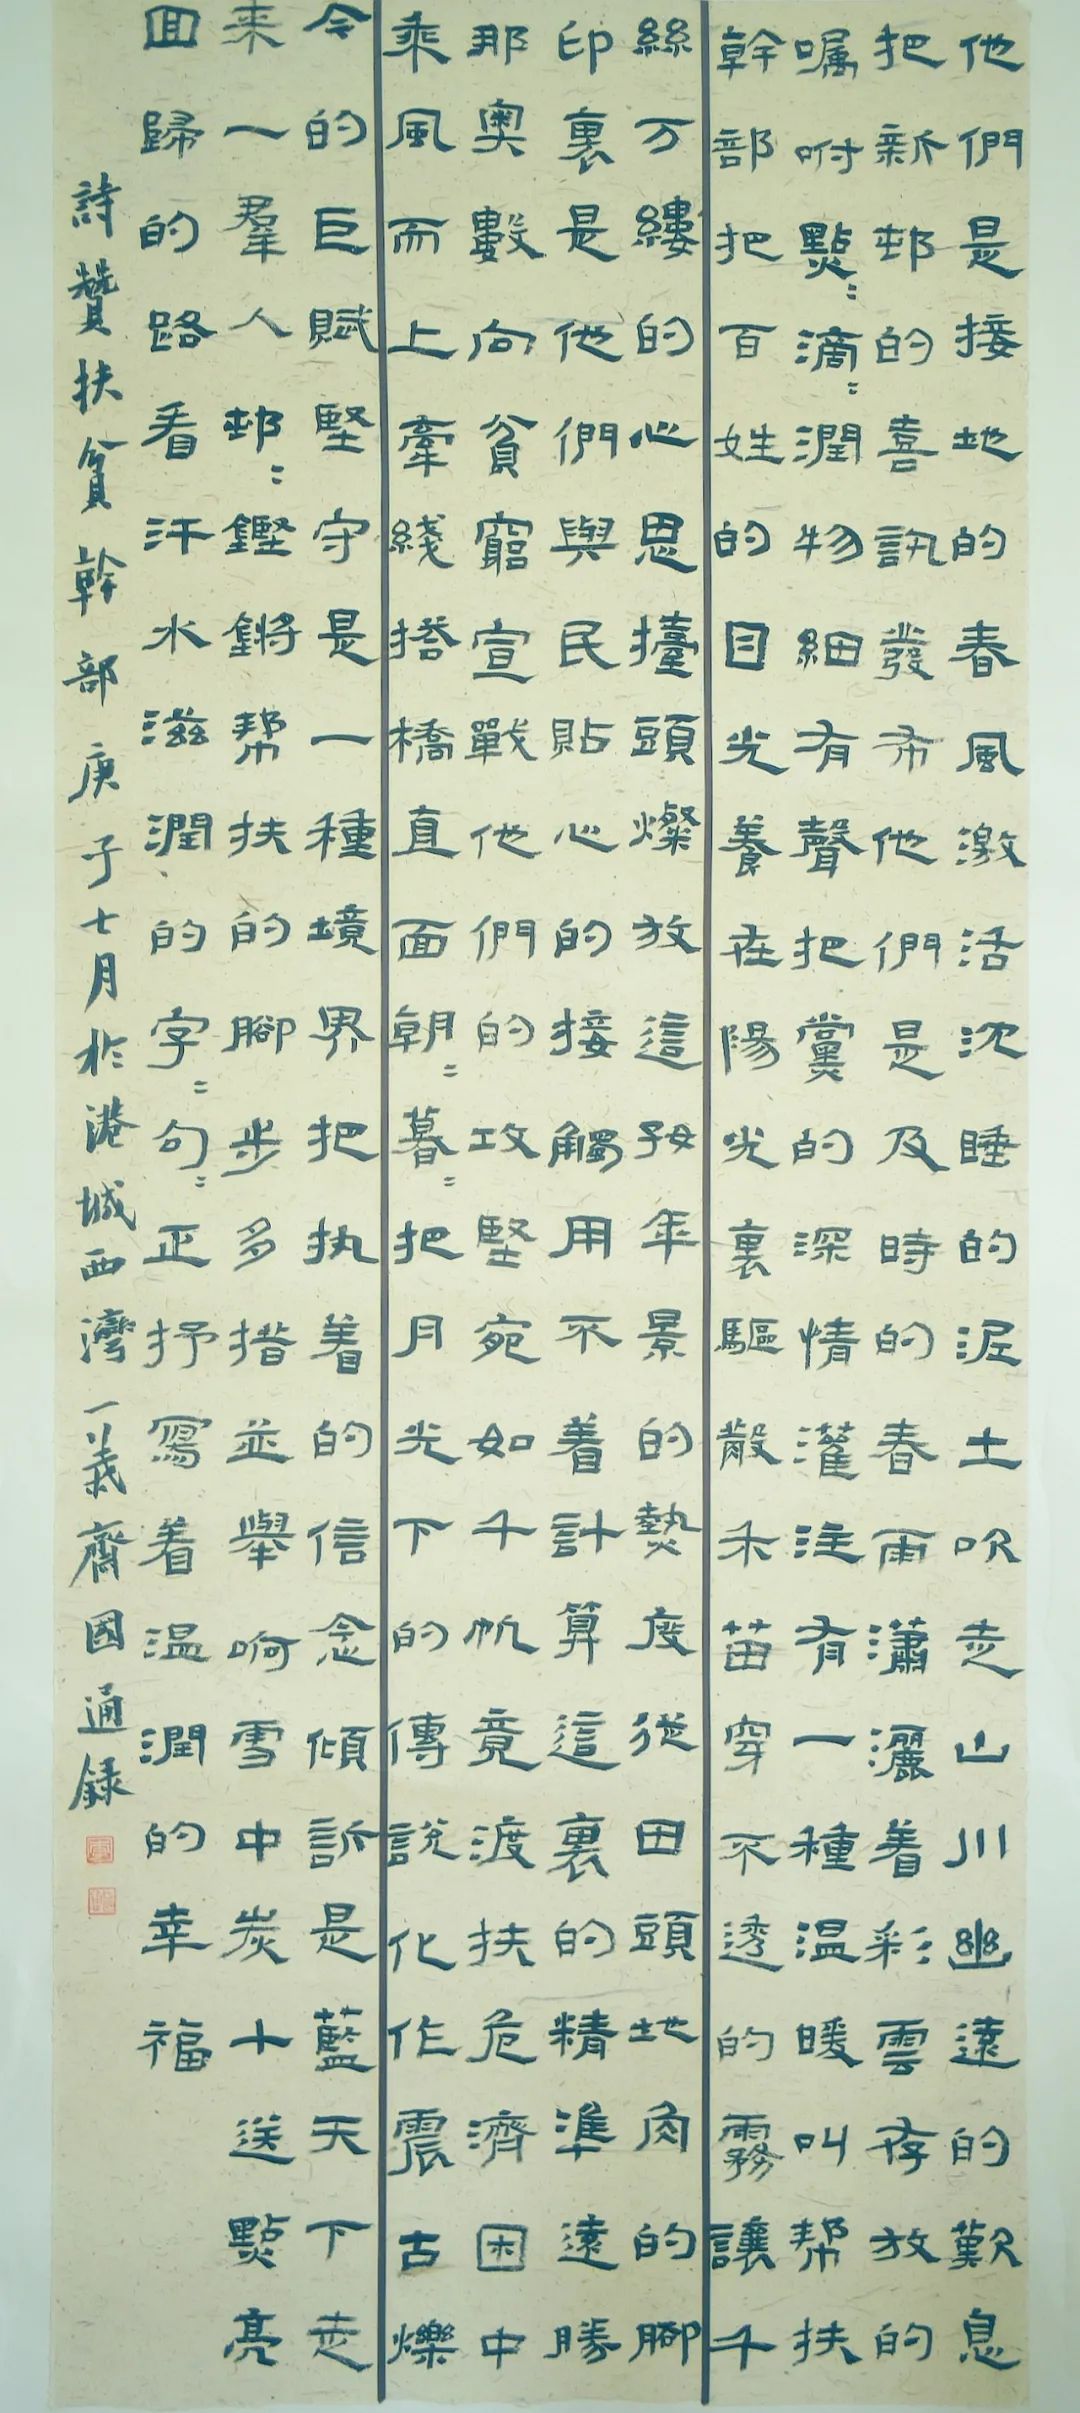 他們是接地的春風激活沈睡的泥土吹走山川幽遠的歎息
把新邨的喜訊發布他們是及時的春雨瀟灑着彩雲存放的
囑咐點〻滴〻潤物細有聲把黨的深情灌注有一種温暖叫幫扶
幹部把百姓的目光養在陽光裏驅散禾苗穿不透的霧讓千
絲万縷的心思擡頭燦放這好年景的熱度從田頭地角的腳
印裏是他們與民貼心的接觸用不着計算這裏的精準遠勝
那奥數向貧窮宣戰他們的攻堅宛如千帆竟渡扶危濟困中
乘風而上牽綫搭橋直面朝〻暮〻把月光下的傳說化作震古爍
今的巨賦堅守是一種境界把执着的信念傾訴是藍天下走
来一羣人邨〻鏗鏘幫扶的腳步多措並舉啊雪中炭十送點亮
回歸的路看汗水滋潤的字〻句〻正抒寫着温潤的幸福
詩贊扶貧幹部庚子七月於港城西灣一義齋國通録